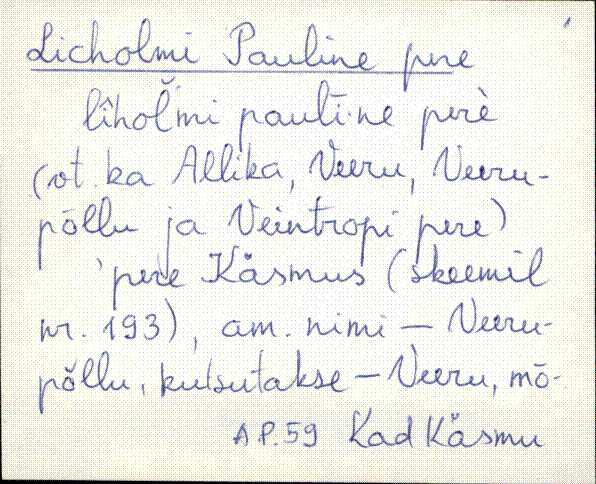 Licholmi Pauline pere
lîhoľmi paulī·ne perè
(vt. ka Allika, Veeru, Veeru-
põllu ja Veintropi pere)
'pere Käsmus (skeemil
nr. 193), am. nimi – Veeru-
põllu, kutsutakse – Veeru, mõ-
AP.59 Kad Käsmu